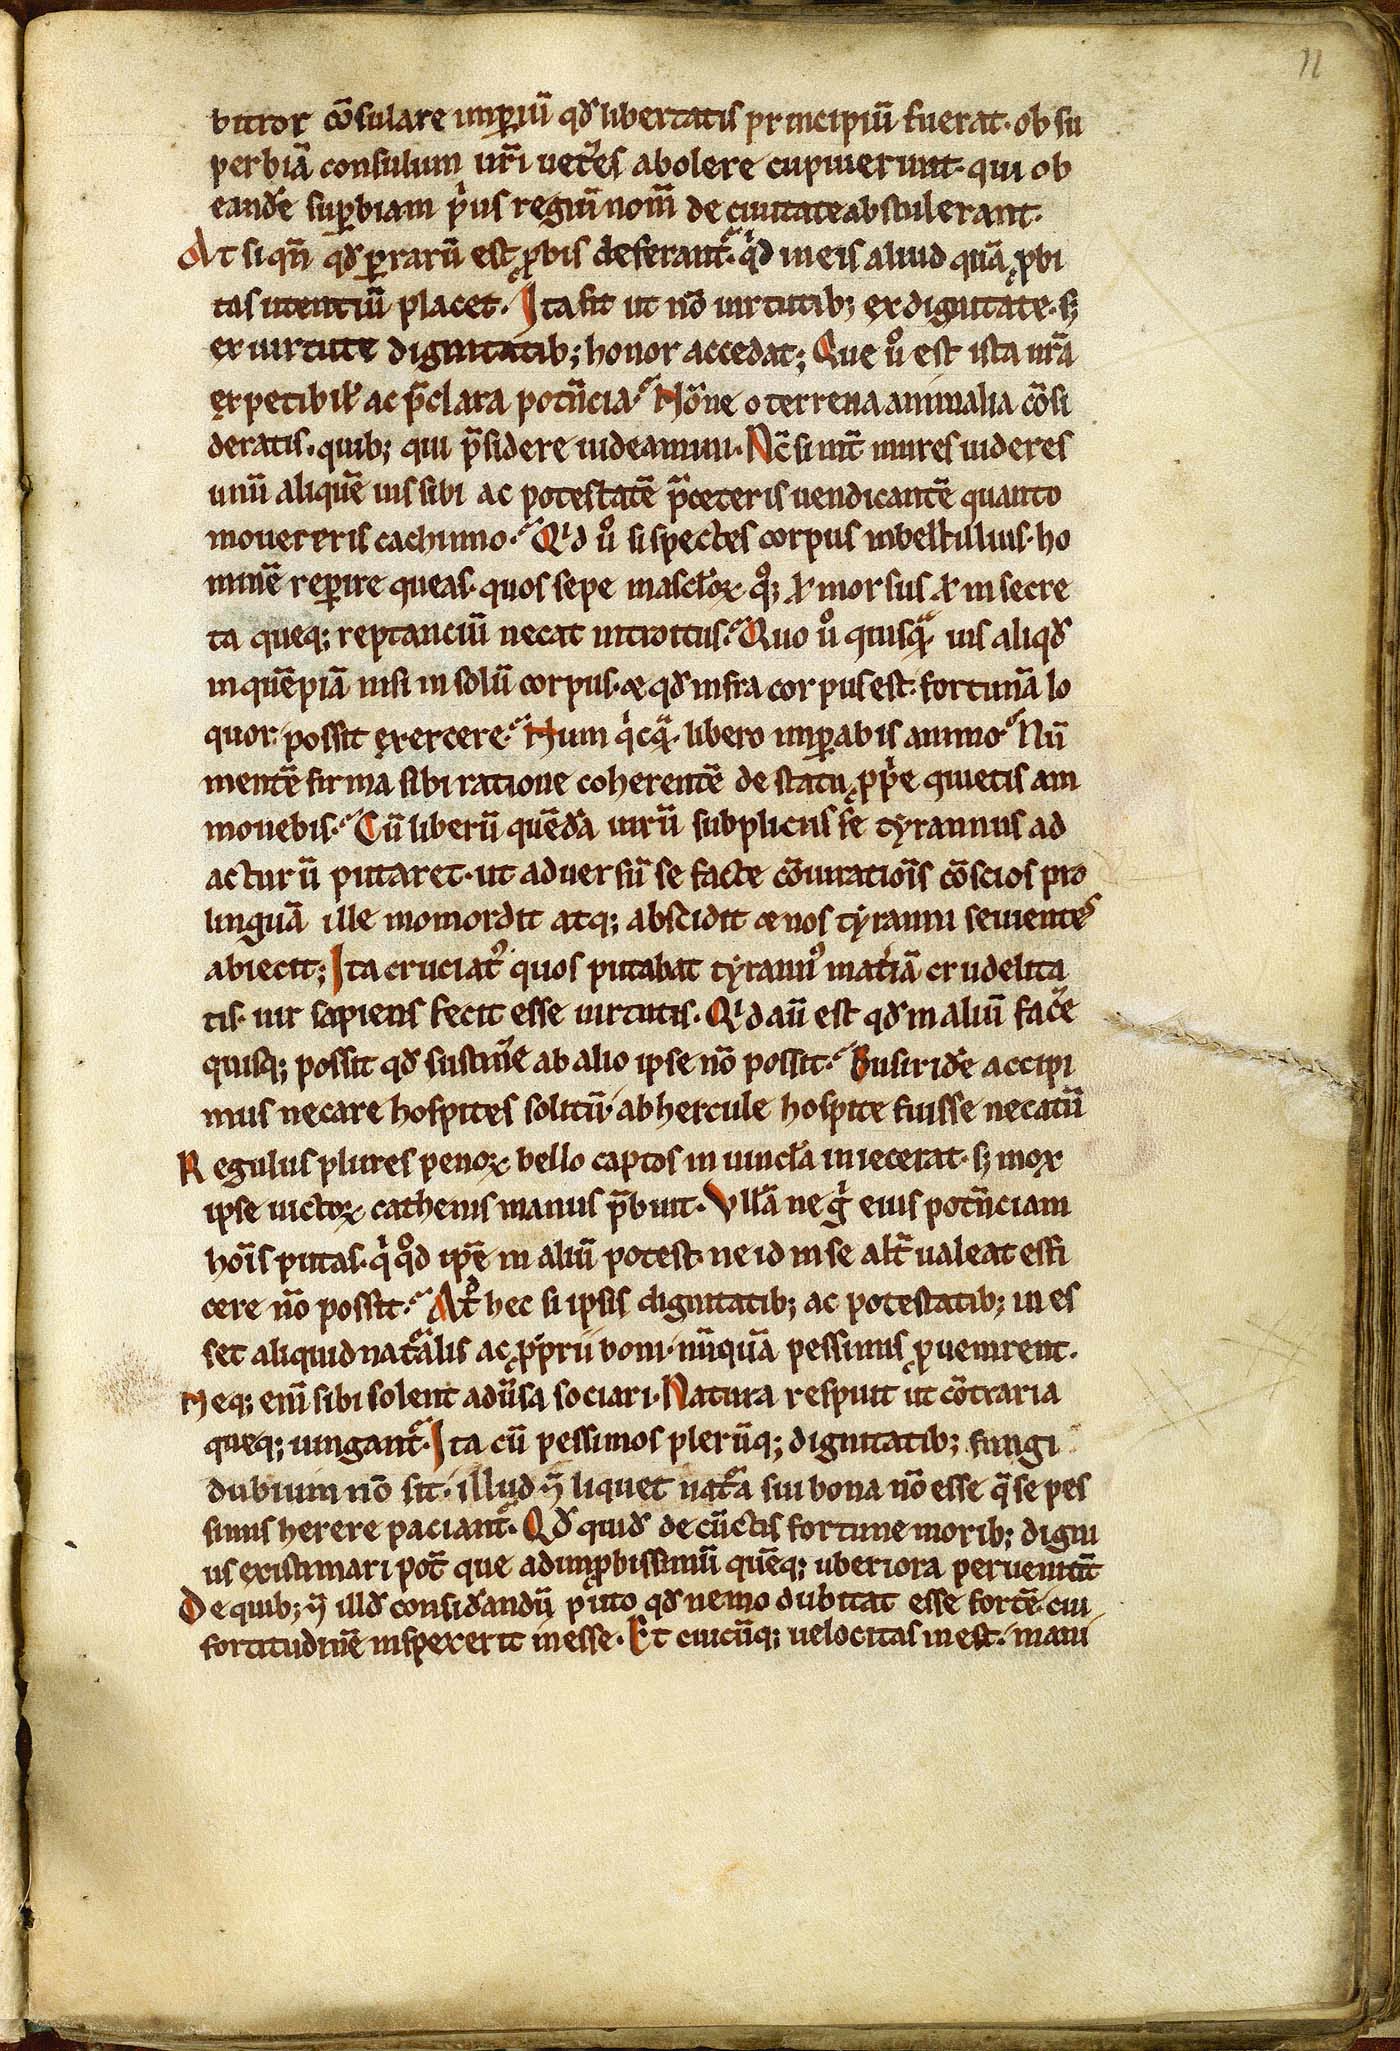 11
bitror c̄sulare imꝑiū qđ libertatis principiū fuerat· ob su
perbiā consulum ur̄i uet͛es abolere cupiuerunt· qui ob
eand͛e suꝑbiam p͛us regiū nom̄ de ciuitate abstulerant·
At si qn̄ qđ ꝑrarū est ꝓbis deferant᷑· qͥd in eis aliud quā ꝓbi
tas utentiū placet· Ita fit ut nō uirtutib; ex dignitate· s;
ex uirtute dignitatib; honor accedat; Que uͦ est ista ur̄a
expetibil̛ ac p̄clara potn̄cia· Nōne o terrena animalia c̄osi
deratis· quib; qui p̄sidere uideamini· Nc̄ si int̄ mures uideres
unū aliquē ius sibi ac potestatē p̄ceteris uendicantē quanto
mouereris cachinno· Qͥd uͦ si spectes corpus inbecillius· ho
minē reꝑire queas· quos sepe muscl̛oꝝ qͦ; ł morsus ł in secre
ta queq; reptanciū necat introitus· Quo uͦ quisqᷓ ius aliqđ
in quēpiā nisi in solū corpus· ⁊ qđ infra corpus est· fortunā lo
quor· possit exercere· Num qͥcqᷓ· libero imꝑabis animo· Nū
mentē firma sibi ratione coherentē de statu ꝓpͥe quietis am
mouebis· Cū liberū quēdā uirū suppliciis se tyrannus ad
acturū putaret· ut aduersū se facte c̄oiurationis c̄oscios pro
linguā ille momordit atq; abscidit ⁊ in os tyranni seuientes
abiecit; Ita cruciat᷒ quos putabat tyrann᷒ mat͛iā crudelita
tis· uir sapiens fecit esse uirtutis· Qͥd aū est qđ in aliū fac͛e
quisq; possit qđ sustin͛e ab alio ipse nō possit· Busirid͛e accipi
mus necare hospites solitū· ab hercule hospite fuisse necatū
Regulus plures penoꝝ bello captos in uincl̛a iniecerat· s; mox
ipse uictoꝝ cathenis manus p̄buit· Ullā ne gͥ eius potn̄ciam
hoīs putas· qͥ qͦd ipē in aliū potest· ne id in se alt̄ ualeat effi
cere nō possit· Ad hec si ipsis dignitatib; ac potestatib; ines
set aliquid nat᷑alis ac ꝓprii boni· nūquā pessimis ꝓuenirent·
Neq; enī sibi solent adu͛sa sociari· Natura respuit ut c̄otraria
queq; iungant᷑· Ita cū pessimos plerūq; dignitatib; fungi
dubium nō sit· illud ꝙ liquet nat᷑a sui bona nō esse q̄ se pes
simis herere paciant᷑· Qđ quid͛ de cūctis fortune morib; digni
us existimari pot̄ que ad imꝓbissimū quēq; uberiora perueniūt
De quib; ꝙ illđ consid͛andū puto qđ nemo dubitat esse fortē· cui
fortitudinē inspexerit inesse· Et cuicūq; uelocitas inest· mani